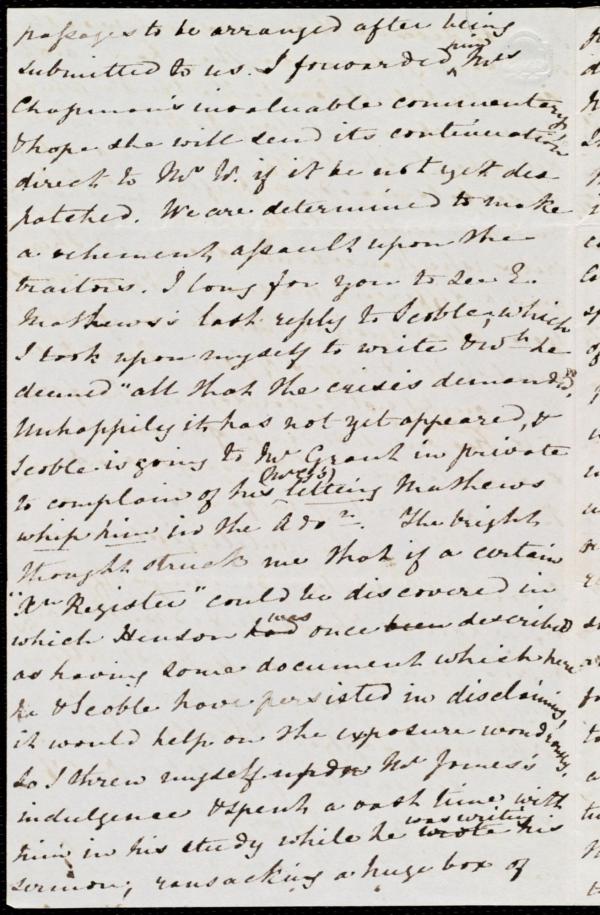 passages to be arranged after being
submitted to us. I forwarded him Mrs
Chapman's invaluable commentary
& hope she will send its continuation
direct to Mr W. if it be not yet des
patched. We are determined to make
a vehement assault upon the
traitors. I long for you to see E.
Mathews's last reply to Scoble, which
I took upon myself to write & wh he
deemed "all that the crisis demanded".
Unhappily it has not yet appeared, &
Scoble is going to Mr Grant in private
to complain of his (Mr G's) letting Mathews
whip him in the Adr. The bright
thought struck me that if a certain
"Xn Register" could be discovered in
which Henson had was once been described
as having some document which here
he & Scoble have persisted in disclaiming,
it would help on the exposure wondrously.
So I threw myself upon Mr James's
indulgence & spent a vast time with
him in his study while he was writing wrote his
sermon, ransacking a huge box of